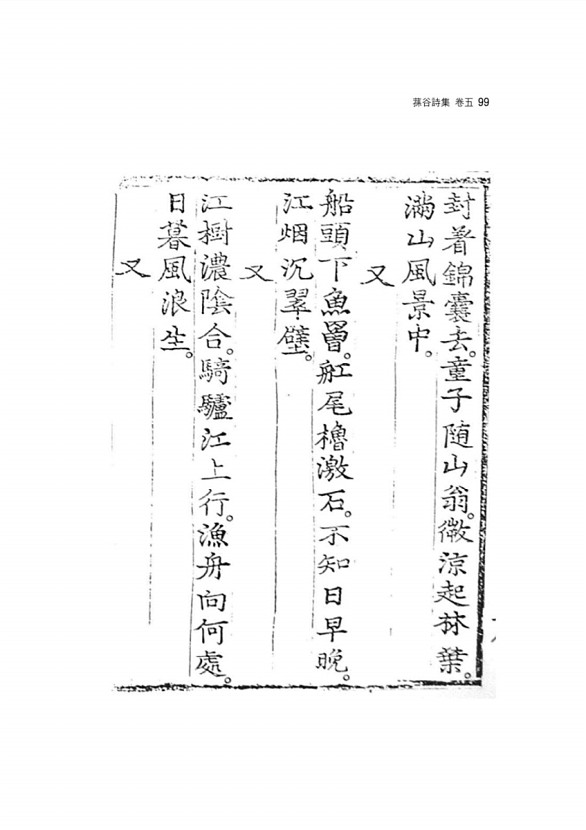 蓀谷詩集 卷五 99
封着錦囊去。童子随山翁。微涼起林葉。
滿山風景中。
又
船頭下魚罾。舡尾櫓激石。不知日早晚。
江烟沉翠壁。
又
江樹濃陰合。騎驢江上行。漁舟向何處。
日暮風浪生。
又